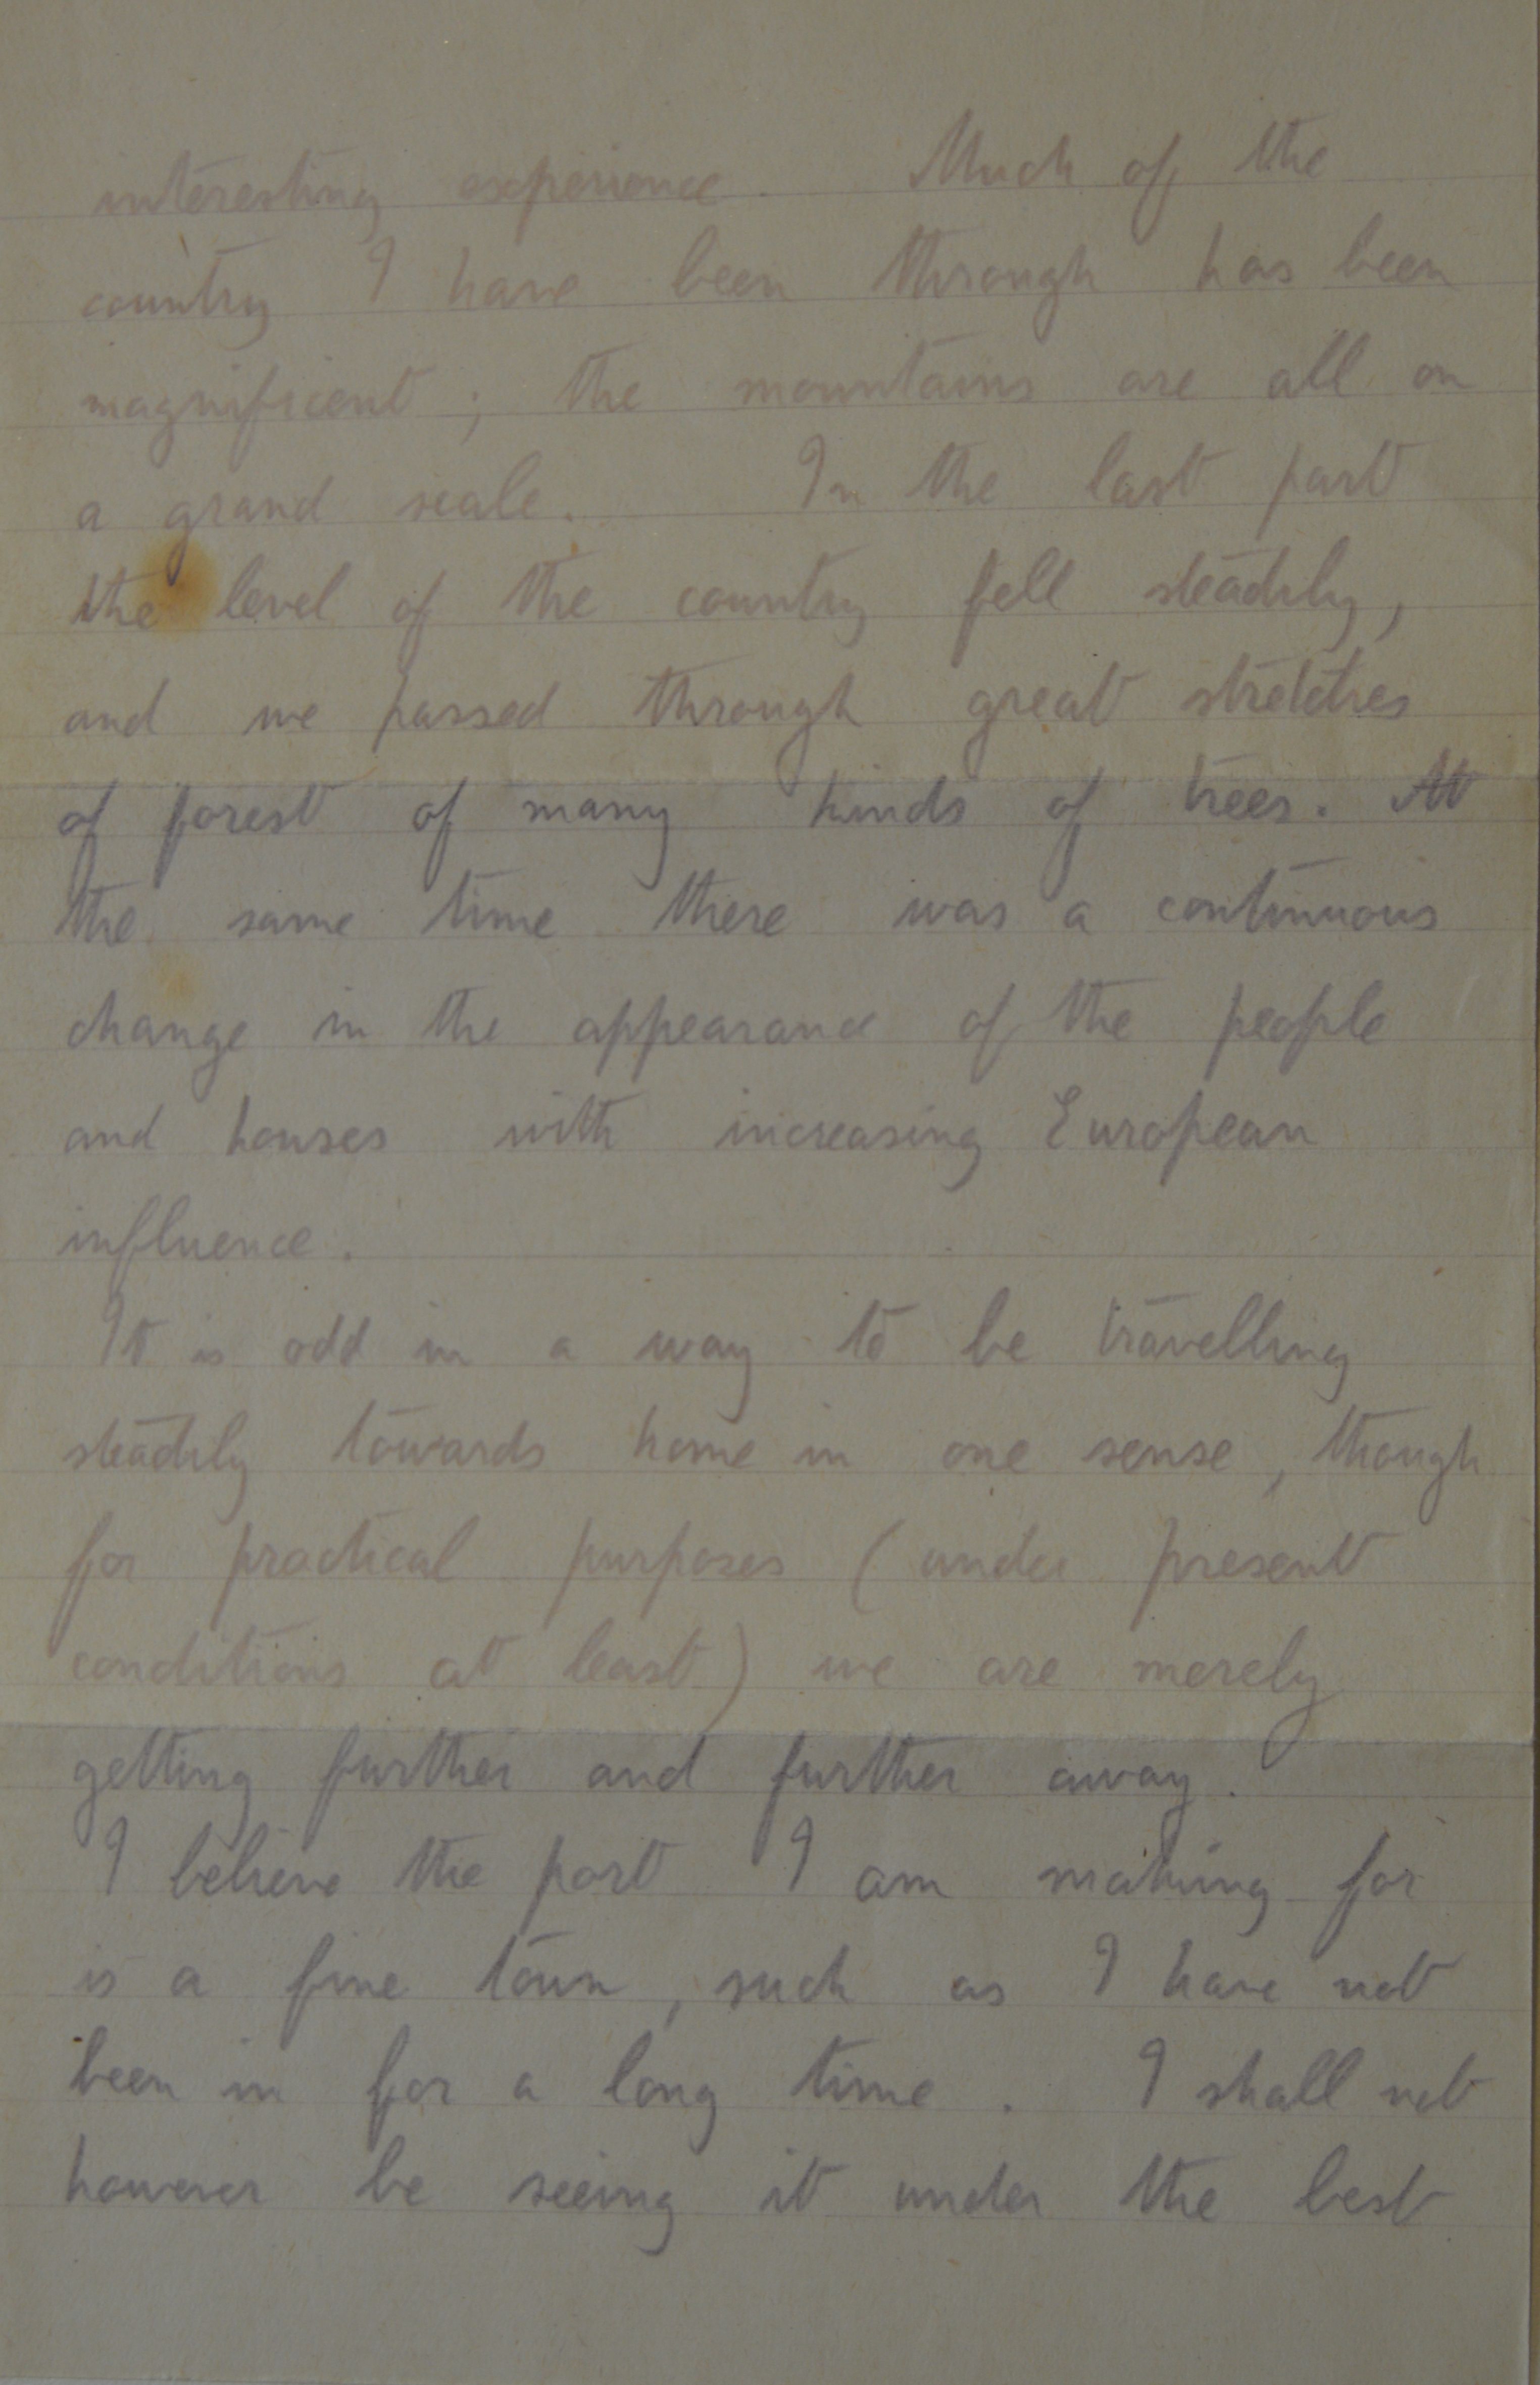 interesting experience. Much of the
country I have been through has been
magnificent; the mountains are all on
a grand scale. In the last part
the level of the country fell steadily,
and we passed through great stretches
of forest of many kinds of trees. At
the same time there was a continuous
change in the appearance of the people
and houses with increasing European
influence.
It is odd in a way to be travelling
steadily towards home in one sense, though
for practical purposes (under present
conditions at least) we are merely
getting further and further away.
I believe the port I am making for
is a fine town, such as I have not
been in for a long time. I shall not
however be seeing it under the best